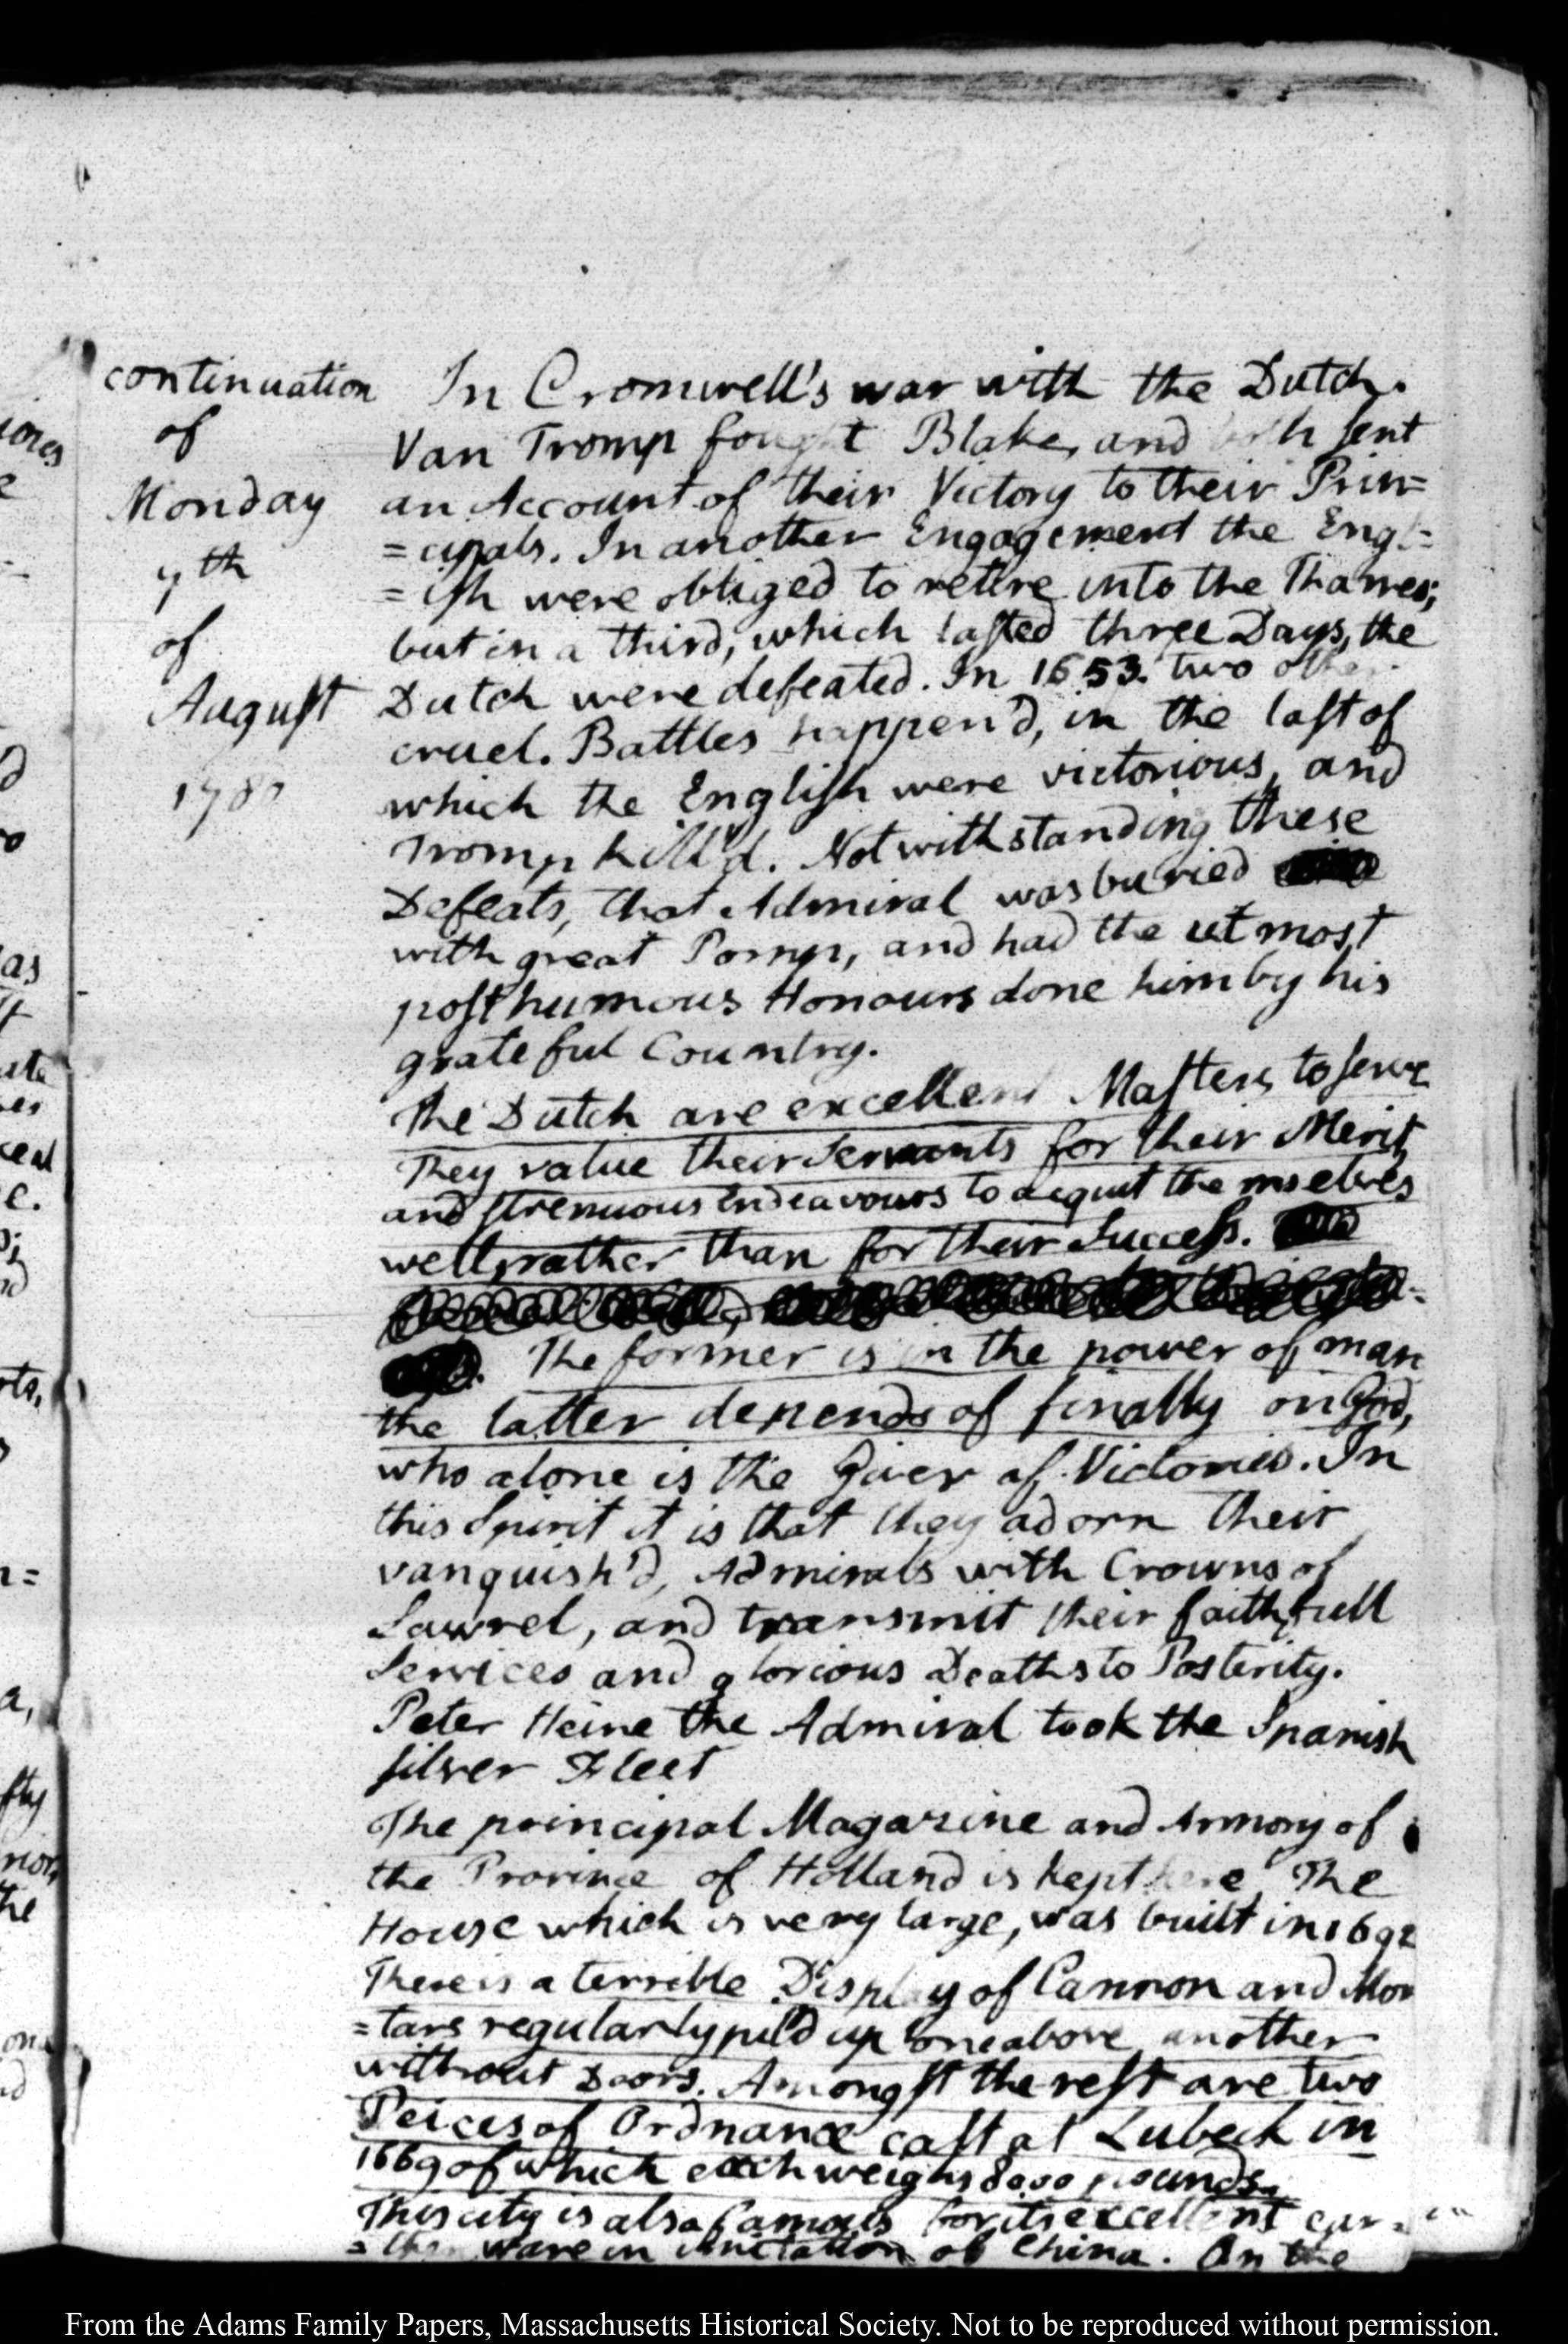 continuation
of
Monday
7th
of
August
1780
In Cromwell's war with the Dutch.
Van Tromp fought Blake, and both sent
an Account of their Victory to their Prin=
=cipals. In another Engagement the Engl=
=ish were obliged to retire into the Thames;
but in a third, which lasted three Days, the
Dutch were defeated. In 1653. two other
cruel. Battles happen'd, in the last of
which the English were victorious, and
Tromp kill'd. Notwithstanding these
Defeats, that Admiral was buried
with great Pomp, and had the utmost
posthumous Honours done him by his
grateful Country.
The Dutch are excellent Masters to serve
They value their Servants for their Merit,
and strenuous Endeavours to acquit themselves
well, rather than for their Success.
The former is in the power of man
the latter depends of finally on God,
who alone is the Giver of Victories. In
this Spirit it is that they adorn their
vanquish'd, Admirals with Crowns of
Lawrel, and transmit their faithfull
Services and glorious Deaths to Posterity.
Peter Heine the Admiral took the Spanish
silver Fleet
The principal Magazine and Armory of
the Province of Holland is kept here The
House which is very large, was built in 1692
There is a terrible Display of Cannon and Mor
=tars regularly pil'd up one above another
without Doors. Amongst the rest are two
Peices of Ordnance cast at Lubeck in
1669 of which each weighs 8000 pounds.
This city is also famous for its excellent ear=
=then ware in imitation of China. On the
From the Adams Family Papers, Massachusetts Historical Society. Not to be reproduced without permission.